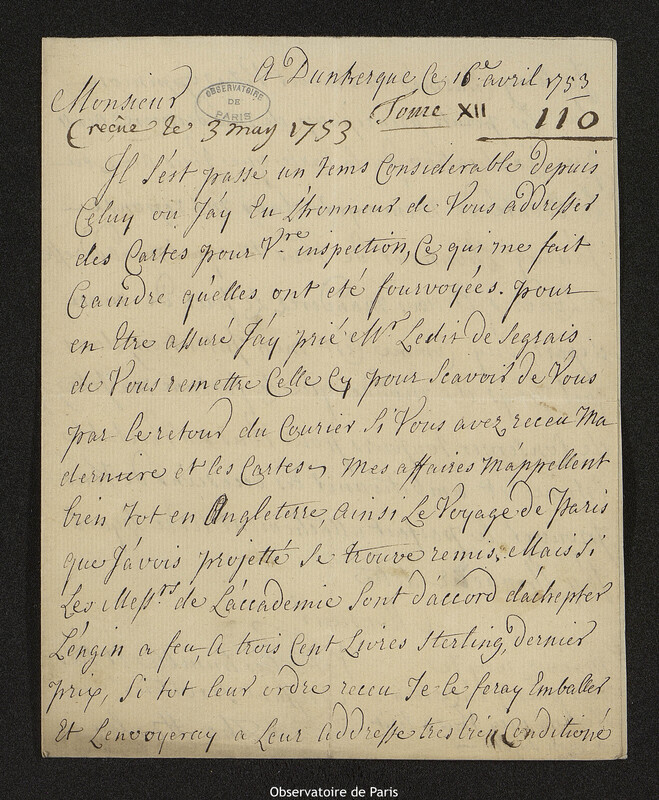 A Dunkerque Ce 16.e avril 1753
Monsieur
OBSERVATOIRE
DE
PARIS
Tome XII 110
(receüe le 3 may 1753
Il s'est passé un tems Considerable depuis
Celuy ou J'ay Eu L'honneur de Vous addresser
des Cartes pour V.re inspection, Ce qui me fait
Craindre qu'elles ont eté fourvoyées. pour
en Etre assuré J'ay prié Mr. Ledit de Segrais
de Vous remettre Celle Cy pour Scavoir de Vous
par le retour du Courier Si Vous avez receu Ma
derniere et les Cartes, Mes affaires m'appellent
bien tot en Angleterre, ainsi Le Voyage de Paris
que J'avois projetté Se trouve remis, Mais Si
Les Mess.rs de L'accademie Sont d'accord d'achepter
L'engin a feu, A trois Cent Livres Sterling, dernier
prix, Si tot leur ordre receu Je le feray Emballer
Et L'envoyeray a Leur Addresse tres bien Conditioné
Observatoire de Paris